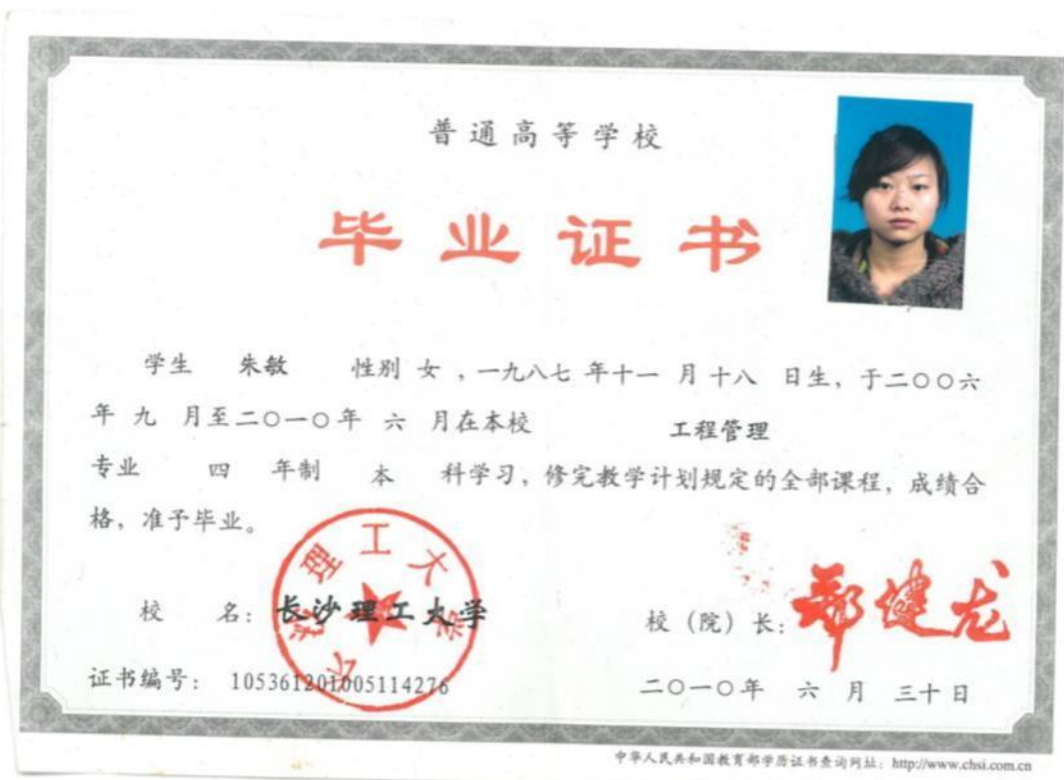 普通高等学校
毕业证书
学生 朱敏 性别 女 ，一九八七 年十一 月 十八 日生，于二〇〇六
年 九 月至二〇一〇年 六 月在本校 工程管理
专业 四 年制 本 科学习，修完教学计划规定的全部课程，成绩合
格，准予毕业。
长沙理工大学
校 名：长沙理工大学
校（院）长：郑健龙
证书编号：105361201005114276
二〇一〇年 六 月 三十日
中华人民共和国教育部学历证书查询网址：http://www.chsi.com.cn